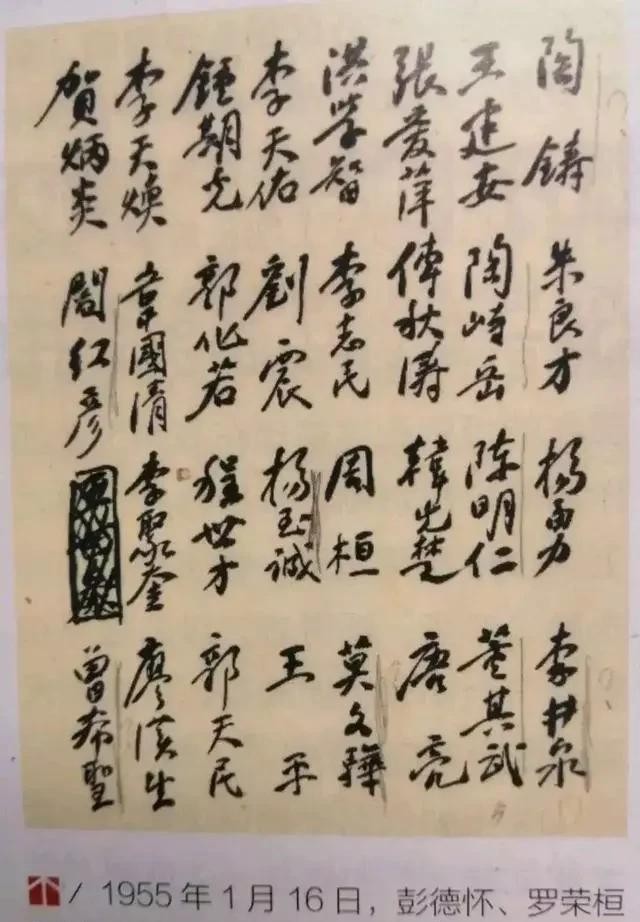 陶鑄 朱良才 楊勇 李井泉
王建安 陶峙岳 陈明仁 董其武
張爱萍 傅秋濤 韓先楚 唐亮
洪学智 李志民 周桓 莫文驊
李天佑 劉震 楊至诚 王平
鍾期光 郭化若 程世才 郭天民
李天焕 韋國清 李聚奎 廖漢生
賀炳炎 閻红彦 曾希聖
1955年1月16日，彭德怀、罗荣桓